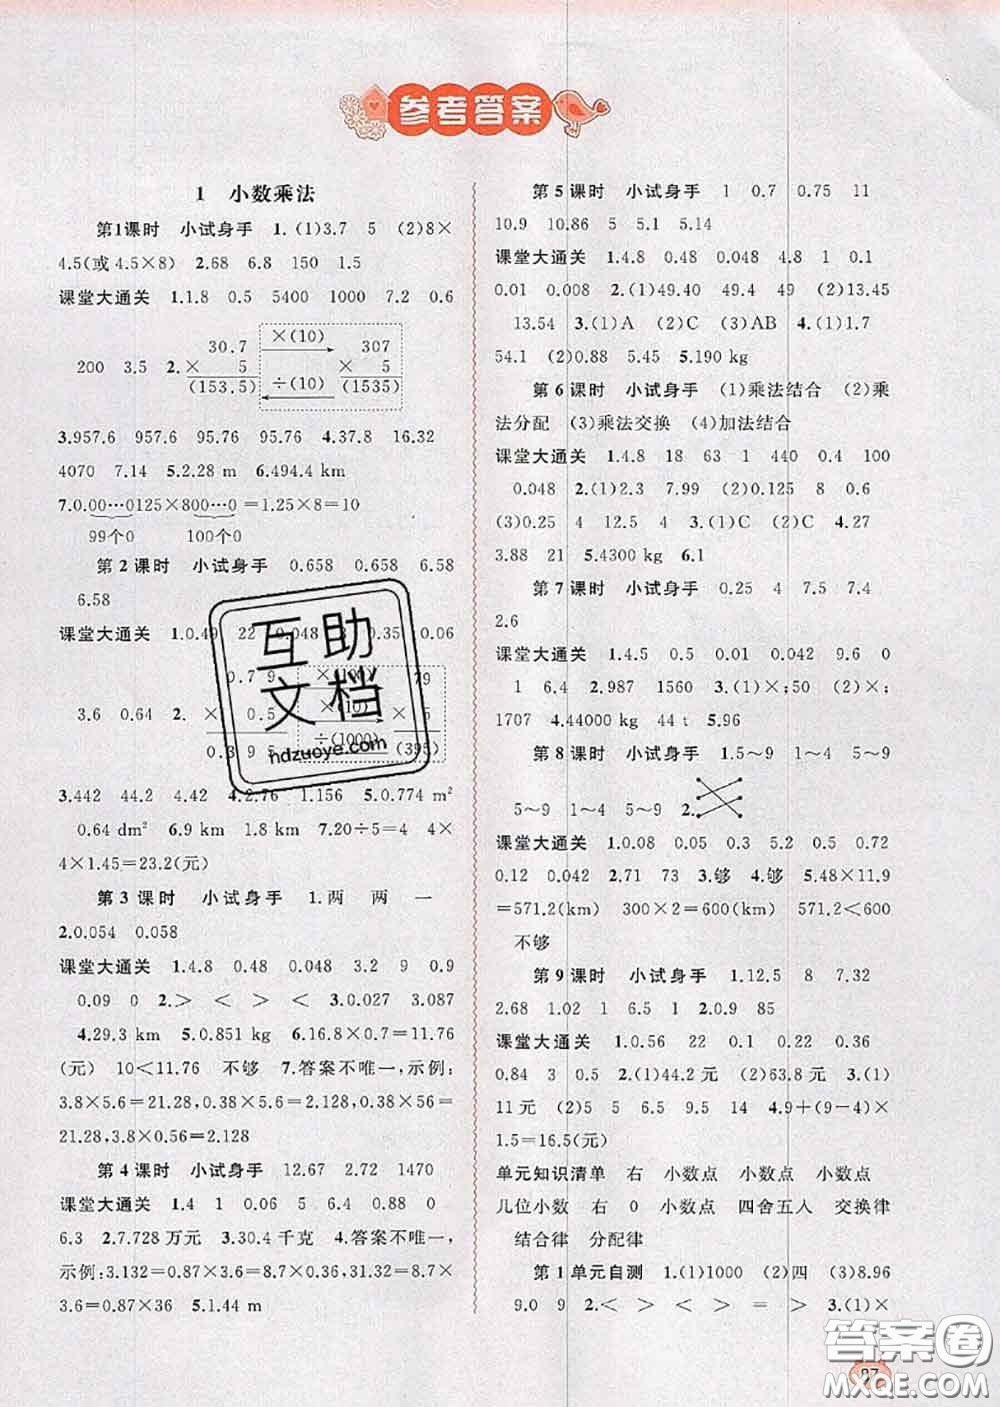 参考答案
1 小数乘法
第1课时 小试身手 1.(1)3.7 5 (2)8×
4.5(或 4.5×8) 2.68 6.8 150 1.5
课堂大通关 1.1.8 0.5 5400 1000 7.2 0.6
200 3.5 2.
30.7 ×(10) 307
× 5 × 5
(153.5) ÷(10) (1535)
3.957.6 957.6 95.76 95.76 4.37.8 16.32
4070 7.14 5.2.28 m 6.494.4 km
7.0.00…0125×800…0=1.25×8=10
99个0 100个0
第2课时 小试身手 0.658 0.658 6.58
6.58
课堂大通关 1.0.49 22 0.048 0.35 0.06
3.6 0.64 2.
0.79 ×(100) 79
× 0.5 ×(10) × 5
0.395 ÷(1000) (395)
3.442 44.2 4.42 4.2.76 1.156 5.0.774 m²
0.64 dm² 6.9 km 1.8 km 7.20÷5=4 4×
4×1.45=23.2(元)
第3课时 小试身手 1.两 两 一
2.0.054 0.058
课堂大通关 1.4.8 0.48 0.048 3.2 9 0.9
0.09 0 2.> < > < 3.0.027 3.087
4.29.3 km 5.0.851 kg 6.16.8×0.7=11.76
(元) 10<11.76 不够 7.答案不唯一,示例:
3.8×5.6=21.28,0.38×5.6=2.128,0.38×56=
21.28,3.8×0.56=2.128
第4课时 小试身手 12.67 2.72 1470
课堂大通关 1.4 1 0.06 5 6.4 0.88 0
6.3 2.7.728 万元 3.30.4 千克 4.答案不唯一,
示例:3.132=0.87×3.6=8.7×0.36,31.32=8.7×
3.6=0.87×36 5.1.44 m
第5课时 小试身手 1 0.7 0.75 11
10.9 10.86 5 5.1 5.14
课堂大通关 1.4.8 0.48 0.048 4.8 1 0.1
0.01 0.008 2.(1)49.40 49.4 49 (2)13.45
13.54 3.(1)A (2)C (3)AB 4.(1)1.7
54.1 (2)0.88 5.45 5.190 kg
第6课时 小试身手 (1)乘法结合 (2)乘
法分配 (3)乘法交换 (4)加法结合
课堂大通关 1.4.8 18 63 1 440 0.4 100
0.048 2.(1)2.3 7.99 (2)0.125 8 0.6
(3)0.25 4 12.5 4 3.(1)C (2)C 4.27
3.88 21 5.4300 kg 6.1
第7课时 小试身手 0.25 4 7.5 7.4
2.6
课堂大通关 1.4.5 0.5 0.01 0.042 9.6 0
1 6.4 2.987 1560 3.(1)×;50 (2)×;
1707 4.44000 kg 44 t 5.96
第8课时 小试身手 1.5～9 1～4 5～9
5～9 1～4 5～9 2.
课堂大通关 1.0.08 0.05 0.3 5.2 0.5 0.72
0.12 0.042 2.71 73 3.够 4.够 5.48×11.9
=571.2(km) 300×2=600(km) 571.2<600
不够
第9课时 小试身手 1.12.5 8 7.32
2.68 1.02 1 6.5 1 2.0.9 85
课堂大通关 1.0.56 22 0.1 0.22 0.36
0.84 3 0.5 2.(1)44.2 元 (2)63.8 元 3.(1)
11元 (2)5 5 6.5 9.5 14 4.9+(9-4)×
1.5=16.5(元)
单元知识清单 右 小数点 小数点 小数点
几位小数 右 0 小数点 四舍五人 交换律
结合律 分配律
第1单元自测 1.(1)1000 (2)四 (3)8.96
9.0 9 2.< > < > = > 3.(1)×
87
互助
文档
hdzuoye.com
答案圈
MXQE.COM